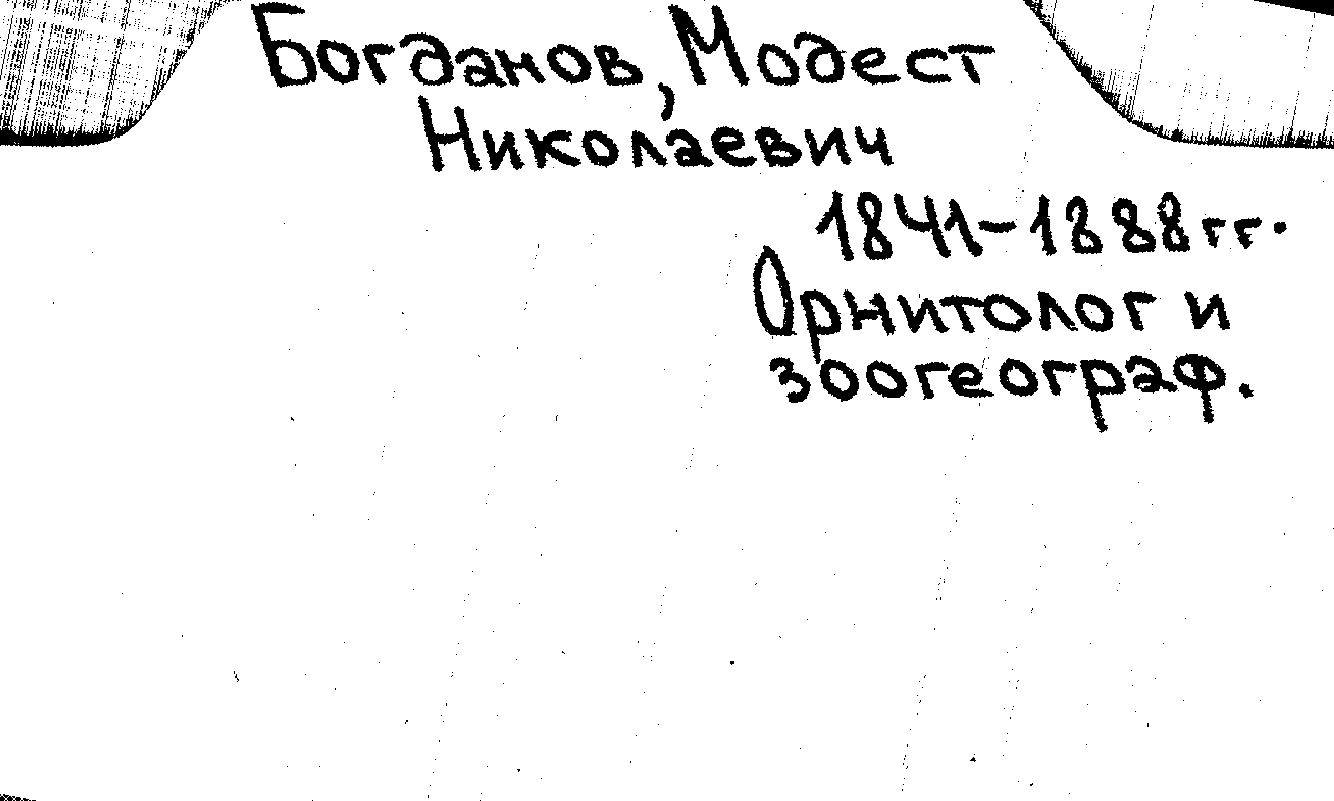 Богданов, Модест
Николаевич
1841-1888гг.
Орнитолог и
зоогеограф.